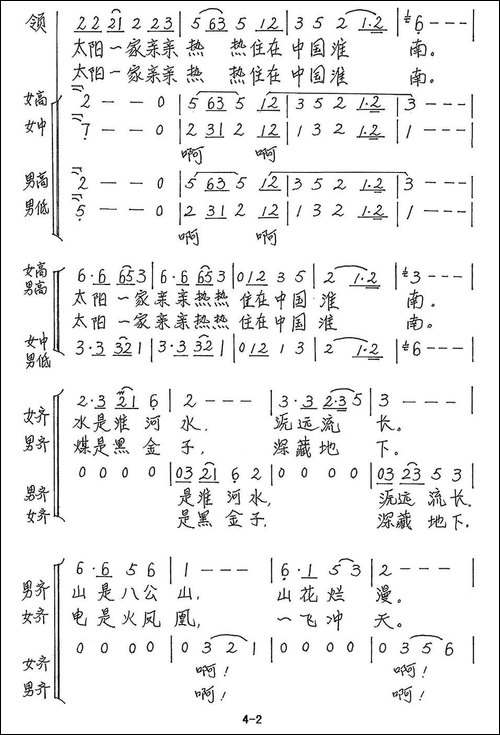 领 2 2 2 1 2 2 3 | 5 6 3 5 1 2 | 3 5 2 1·2 | 6 - - - |
太阳一家亲亲热 热住在中国淮 南。
太阳一家亲亲热 热住在中国淮 南。
女高 2 - - 0 | 5 6 3 5 1 2 | 3 5 2 1·2 | 3 - - - |
女中 7 - - 0 | 2 3 1 2 1 2 | 1 3 2 1·2 | 1 - - - |
啊 啊
男高 2 - - 0 | 5 6 3 5 1 2 | 3 5 2 1·2 | 3 - - - |
男低 5 - - 0 | 2 3 1 2 1 2 | 1 3 2 1·2 | 1 - - - |
啊 啊
女高
男高 6·6 6 5 3 | 6·6 6 5 3 | 0 1 2 3 5 | 2 1·2 | 3 - - - |
太阳一家亲亲热热 住在中国淮 南。
太阳一家亲亲热热 住在中国淮 南。
女中
男低 3·3 3 2 1 | 3·3 3 2 1 | 0 1 2 1 3 | 2 1·2 | 6 - - - |
女齐 2·3 2 1 6 | 2 - - - | 3·3 2·3 5 | 3 - - - |
水是淮河 水, 源远流 长。
男齐 煤是黑金 子, 深藏地 下。
男齐 0 0 0 0 | 0 3 2 1 6 2 | 0 0 0 0 | 0 3 2 3 5 3 |
是淮河水, 源远流长。
女齐 是黑金子, 深藏地下。
6·6 5 6 | 1 - - - | 6·1 5 3 | 2 - - - |
男齐 山是八公 山, 山花烂 漫。
女齐 电是火凤 凰, 一飞冲 天。
0 0 0 0 | 0 3 2 1 | 0 0 0 0 | 0 3 5 6 |
女齐 啊! 啊!
男齐 啊! 啊!
4-2